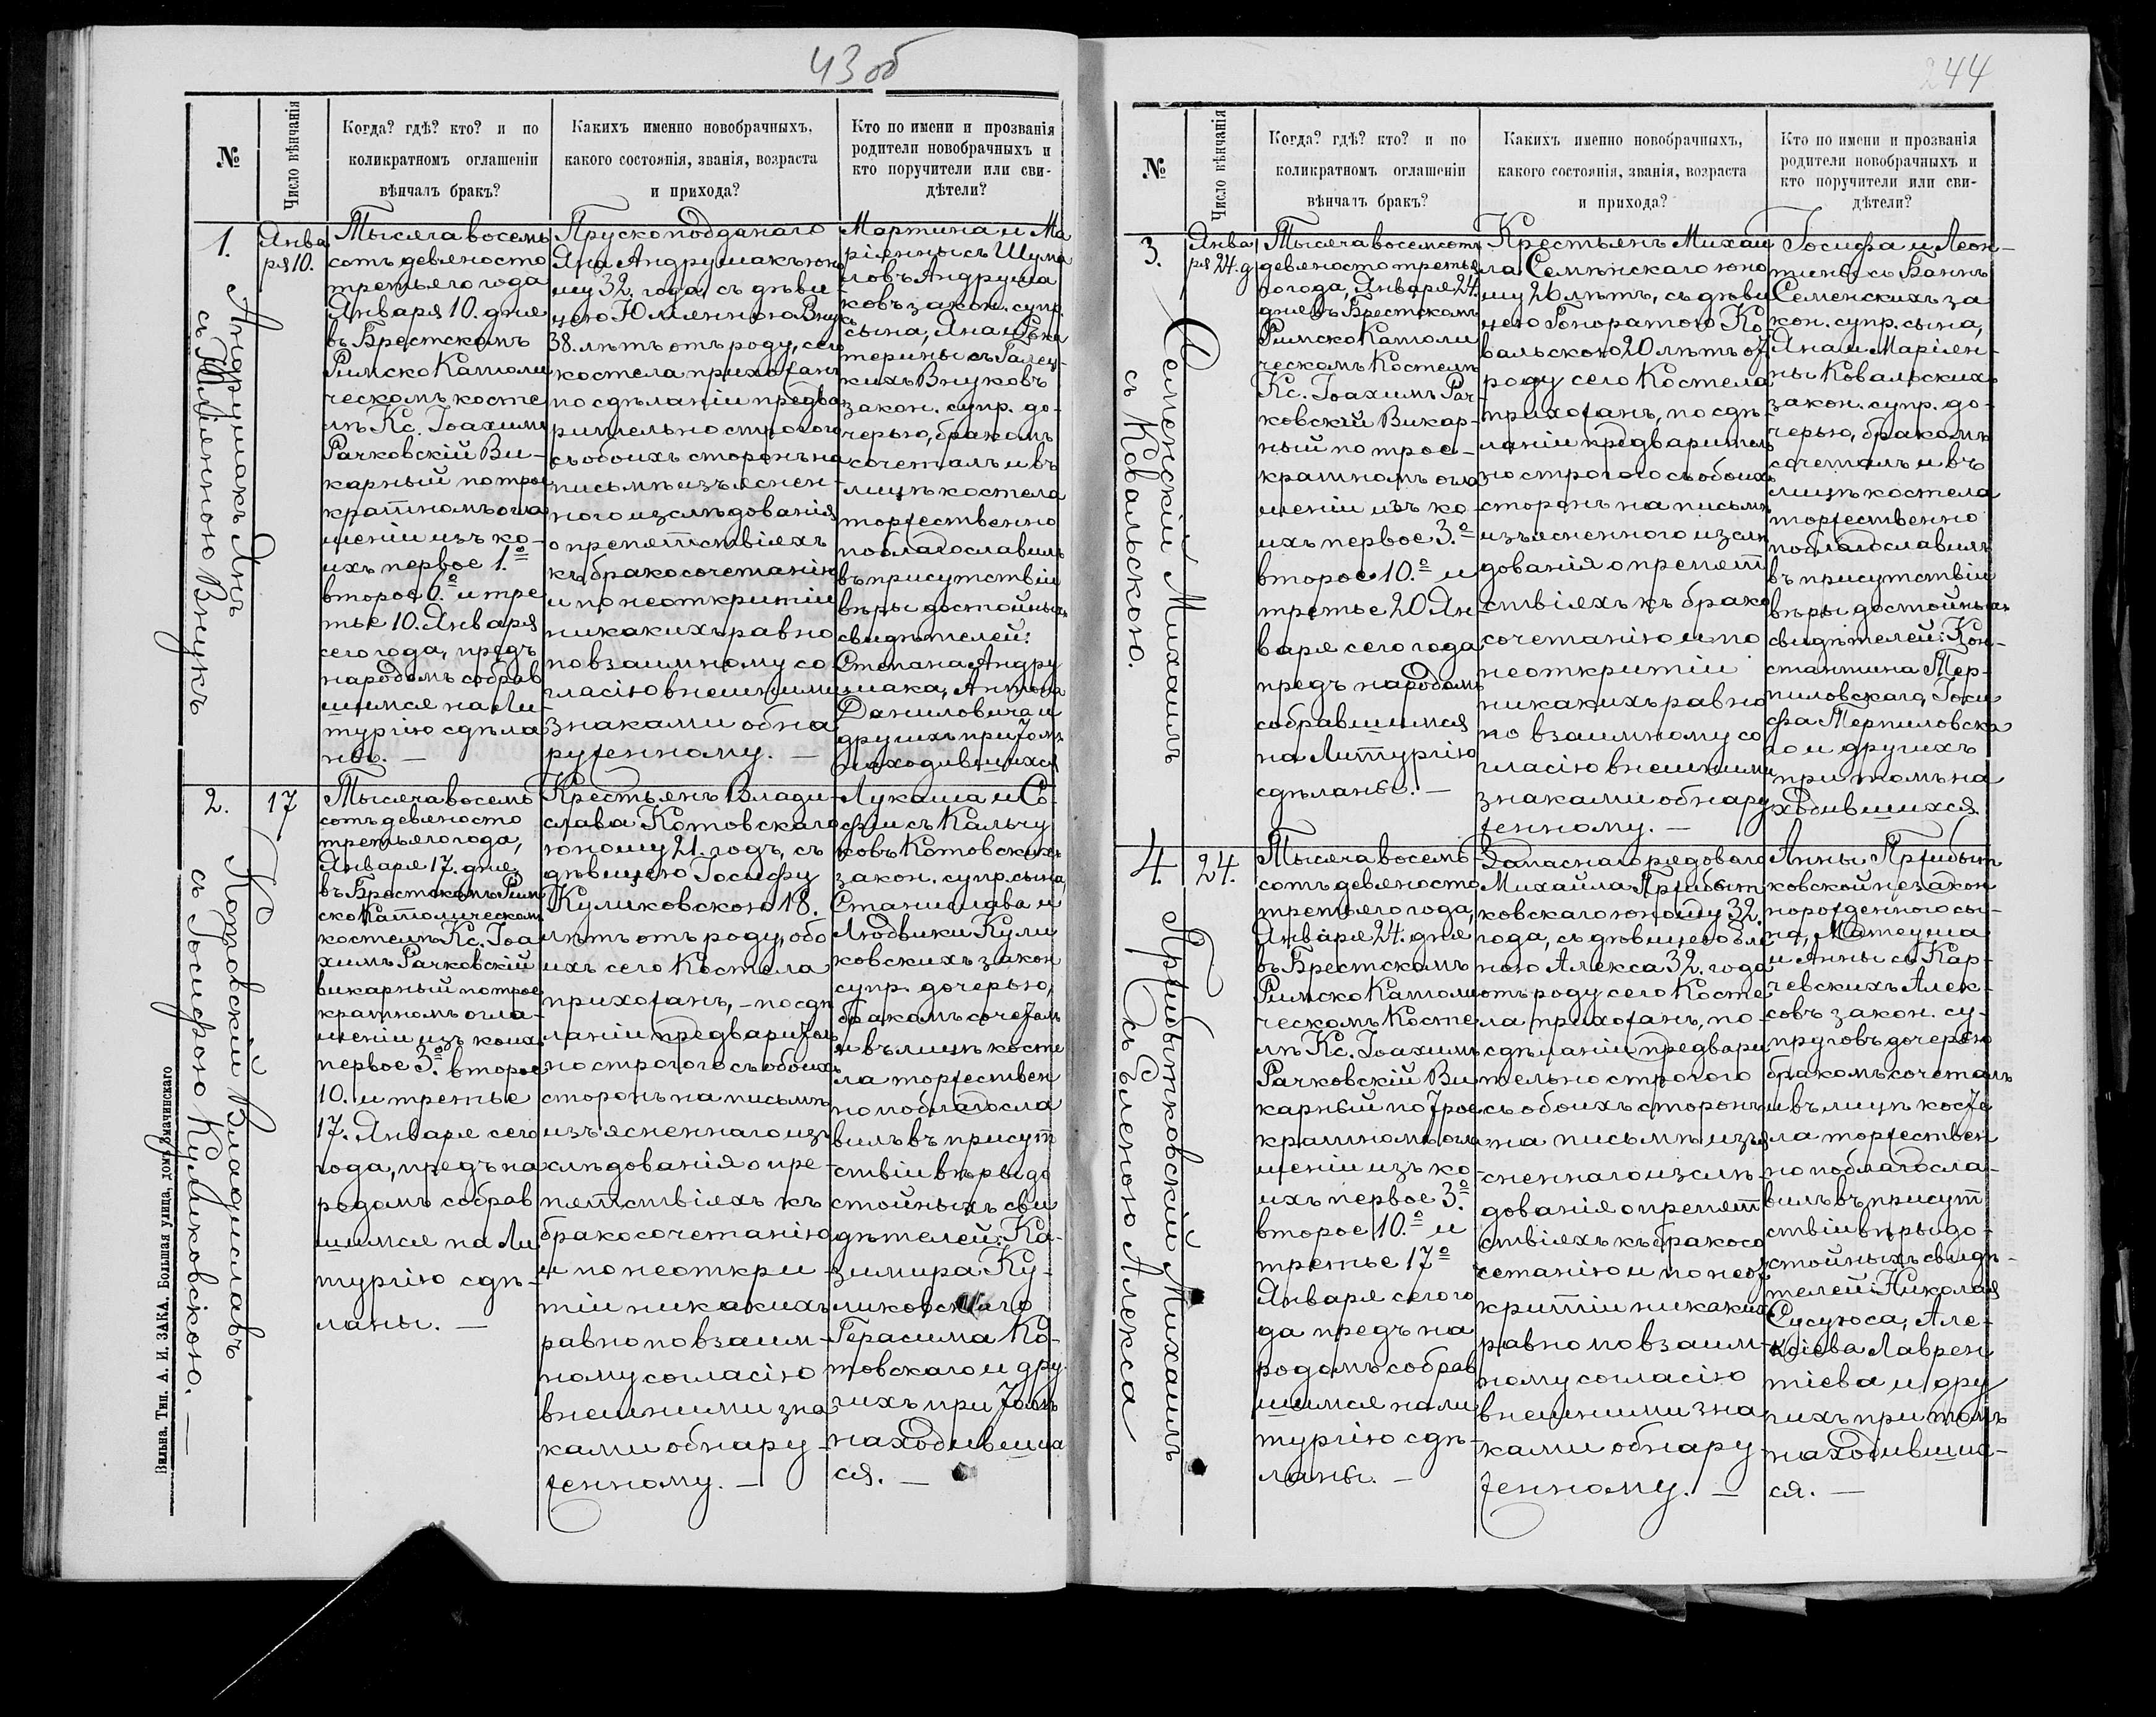 43 об
№
Число вѣнчанія
Когда? гдѣ? кто? и по
коликратномъ оглашеніи
вѣнчалъ бракъ?
Какихъ именно новобрачныхъ,
какого состоянія, званія, возраста
и прихода?
Кто по имени и прозванія
родители новобрачныхъ и
кто поручители или сви-
дѣтели?
1.
Андрушакъ Янъ
съ Юліянною Внукъ
Янва
ря 10.
Тысяча восемь
сотъ девяносто
третьяго года
Января 10. дня
въ Брестскомъ
Римско Католи
ческомъ косте
лѣ Кс. Іоахимъ
Рачковскій Ви-
карный по трое
кратномъ огла
шеніи изъ ко-
ихъ первое 1.о
второе 6.о и тре
тье 10. Января
сего года, предъ
народомъ собрав
шимся на Ли-
тургію сдѣла
ны. —
Прускоподданаго
Яна Андрушакъ юно
шу 32. года, съ дѣви-
цею Юліянною Внукъ
38. лѣтъ отъ роду, сего
костела прихожанъ
по сдѣланіи предва
рительно строгого
съ обоихъ сторонъ на
письмѣ изъяснен-
ного изслѣдованія
о препятствіяхъ
къ бракосочетанію
и по неоткритіи
никакихъ равно
по взаимному со
гласію внешними
знаками обна
руженному. —
Мартина и Ма
ріянны съ Шума
ловъ Андруша
ковъ закон. супр.
сына, Яна и Ека
терины съ Галец-
кихъ Внуковъ
закон. супр. до-
черью, бракомъ
сочеталъ и въ
лицѣ костела
торжественно
поблагославилъ
въ присутствіи
вѣры достойныхъ
свидѣтелей:
Степана Андру
шака, Антона
Даниловича и
другихъ при томъ
находившихся
2.
Котовскій Владиславъ
съ Іосифою Куликовскою. —
17
Тысяча восемь
сотъ девяносто
третьяго года,
Января 17. дня
въ Брестскомъ Рим
ско Католическомъ
костелѣ Кс. Іоа
химъ Рачковскій
викарный по трое
кратномъ огла-
шеніи изъ коихъ
первое 3.о второе
10. и третье
17. Января сего
года, предъ на
родомъ собрав
шимся на Ли
тургію сдѣ-
ланы. —
Крестьянъ Влади-
слава Котовскаго
юношу 21. годъ, съ
дѣвицею Іосифу
Куликовскою 18.
лѣтъ отъ роду, обо
ихъ сего Костела
прихожанъ, — по сдѣ
ланіи предваритель
но строгого съ обоихъ
сторонъ на письмѣ
изъясненнаго из
слѣдованія о пре-
пятствіяхъ къ
бракосочетанію
и по неоткри-
тіи никакихъ
равно по взаим-
ному согласію
внешними зна
ками обнару-
женному. —
Лукаша и Со-
фіи съ Кальчу
ковъ Котовскихъ
закон. супр. сына,
Станислава и
Людвики Кули
ковскихъ закон
супр. дочерью,
бракомъ сочеталъ
и въ лицѣ косте
ла торжествен
но поблагосла
вилъ въ присут
ствіи вѣры до
стойныхъ сви
дѣтелей: Ка-
зимира Ку-
ликовскаго
Герасима Ко-
товскаго и дру-
гихъ при томъ
находивших
ся. —
Вильна. Тип. А. И. ЗАКА. Большая улица, домъ Змачинскаго
244
№
Число вѣнчанія
Когда? гдѣ? кто? и по
коликратномъ оглашеніи
вѣнчалъ бракъ?
Какихъ именно новобрачныхъ,
какого состоянія, званія, возраста
и прихода?
Кто по имени и прозванія
родители новобрачныхъ и
кто поручители или сви-
дѣтели?
3.
Семенскій Михаилъ
съ Ковальскою.
Янва
ря 24. д
Тысяча восемсотъ
девяносто третья
го года, Января 24.
дня въ Брестскомъ
Римско Католи
ческомъ Костелѣ
Кс. Іоахимъ Рач-
ковскій Викар-
ный по трое-
кратномъ огла
шеніи изъ ко-
ихъ первое 3.о
второе 10.о и
третье 20 Ян-
варя сего года
предъ народомъ
собравшимся
на Литургію
сдѣланы. —
Крестьянъ Михаи
ла Семѣнскаго юно
шу 26 лѣтъ, съ дѣви
цею Гоноратою Ко-
вальскою 20 лѣтъ от
роду сего Костела
прихожанъ, по сдѣ-
ланіи предварител
но строгого съ обоихъ
сторонъ на письмѣ
изъясненного изслѣ
дованія о препят
ствіяхъ къ брако
сочетанію и по
неоткритіи
никакихъ равно
по взаимному со
гласію внешними
знаками обнару
женному. —
Іосифа и Леон-
тины съ Баннъ
Семенскихъ за
кон. супр. сына,
Яна и Маріян-
ны Ковальскихъ
закон. супр. до-
черью, бракомъ
сочеталъ и въ
лицѣ костела
торжественно
поблагославилъ
въ присутствіи
вѣры достойныхъ
свидѣтелей: Кон-
стантина Тер-
пиловскаго, Іоси
фа Терпиловска
го и другихъ
при томъ на
ходившихся.
4.
Пржибытковскій Михаилъ
съ Еленою Алекса
24.
Тысяча восемь-
сотъ девяносто
третьяго года,
Января 24. дня
въ Брестскомъ
Римско Католи
ческомъ Косте
лѣ Кс. Іоахимъ
Рачковскій Ви
карный по трое
кратномъ огла
шеніи изъ ко-
ихъ первое 3.о
второе 10.о и
третье 17о
Января сего го
да предъ на
родомъ собрав
шимся на ли
тургію сдѣ-
ланы. —
Запаснаго рядоваго
Михаила Пржибыт
ковскаго юношу 32.
года, съ дѣвицею Еле
ною Алекса 32. года
отъ роду сего Косте
ла прихожанъ, по-
сдѣланіи предвари
тельно строгого
съ обоихъ сторонъ
на письмѣ изъя
сненнаго изслѣ-
дованія о препят
ствіяхъ къ бракосо
четанію и по неот
критіи никакихъ
равно по взаим-
ному согласію
внешними зна
ками обнару-
женному. —
Анны Пржибыт
ковской незакон
норожденного сы-
на, Матеуша
и Анны съ Кар-
чевскихъ Алек-
совъ закон. су-
пруговъ дочерью
бракомъ сочеталъ
и въ лицѣ косте
ла торжествен
но поблагосла-
вилъ въ присут
ствіи вѣры до-
стойныхъ свидѣ-
телей: Николая
Сусуюса, Але-
ксіева Лаврен
тіева и дру
гихъ при томъ
находивших-
ся. —